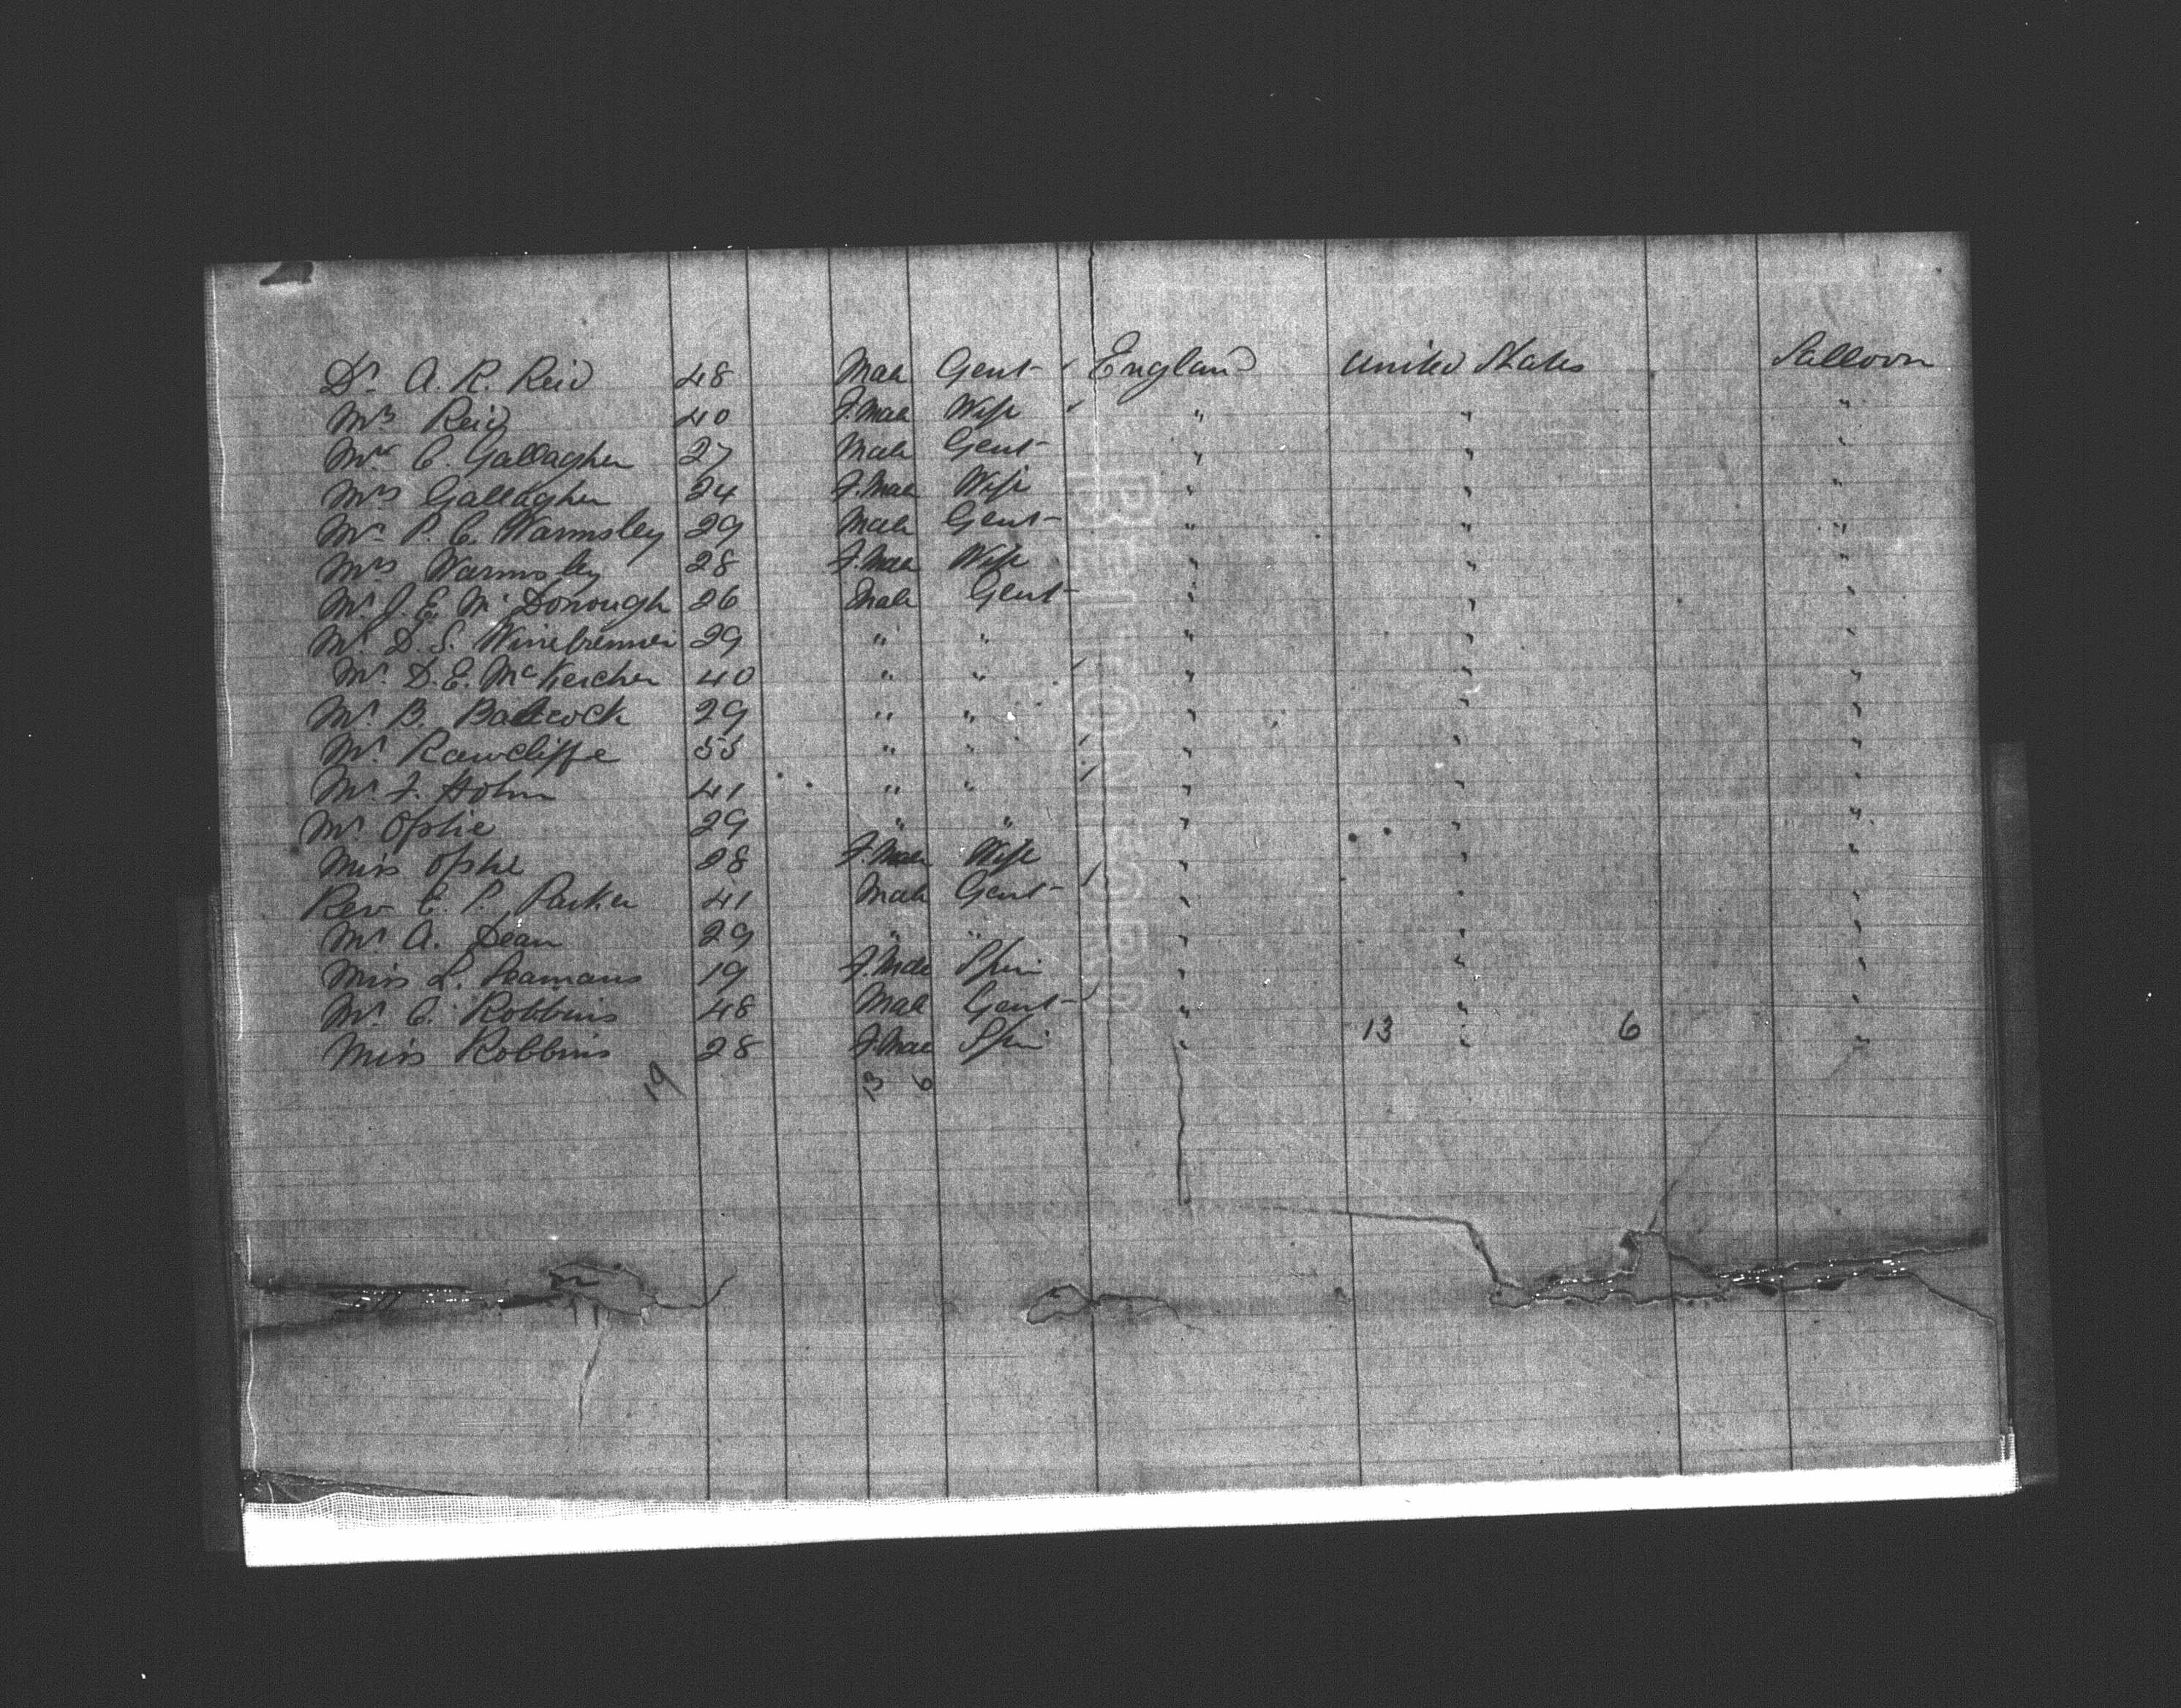 Dr. A. R. Reid 48 Male Gent England United States Salloon
Mrs Reid 40 F.Male Wife " " "
Mr. C. Gallagher 27 Male Gent " " "
Mrs Gallagher 24 F.Male Wife " " "
Mr. P. C. Warmsley 29 Male Gent " " "
Mrs Warmsley 28 F.Male Wife " " "
Mr. J. E. McDonough 26 Male Gent " " "
Mr. D. S. Winebrenner 29 " " " " "
Mr. D. E. McKercher 40 " " " " "
Mr. B. Badcock 29 " " " " "
Mr. Rawcliffe 55 " " " " "
Mr. F. Holm 41 " " " " "
Mr Ophie 29 " " " " "
Miss Ophie 28 F.Male Wife " " "
Rev E. P. Parker 41 Male Gent " " "
Mr A. Dean 29 " " " " "
Miss L. Seamans 19 F.Male Spin " " "
Mr. C. Robbins 48 Male Gent " " "
Miss Robbins 28 F.Male Spin " 13 " 6 "
19 13 6